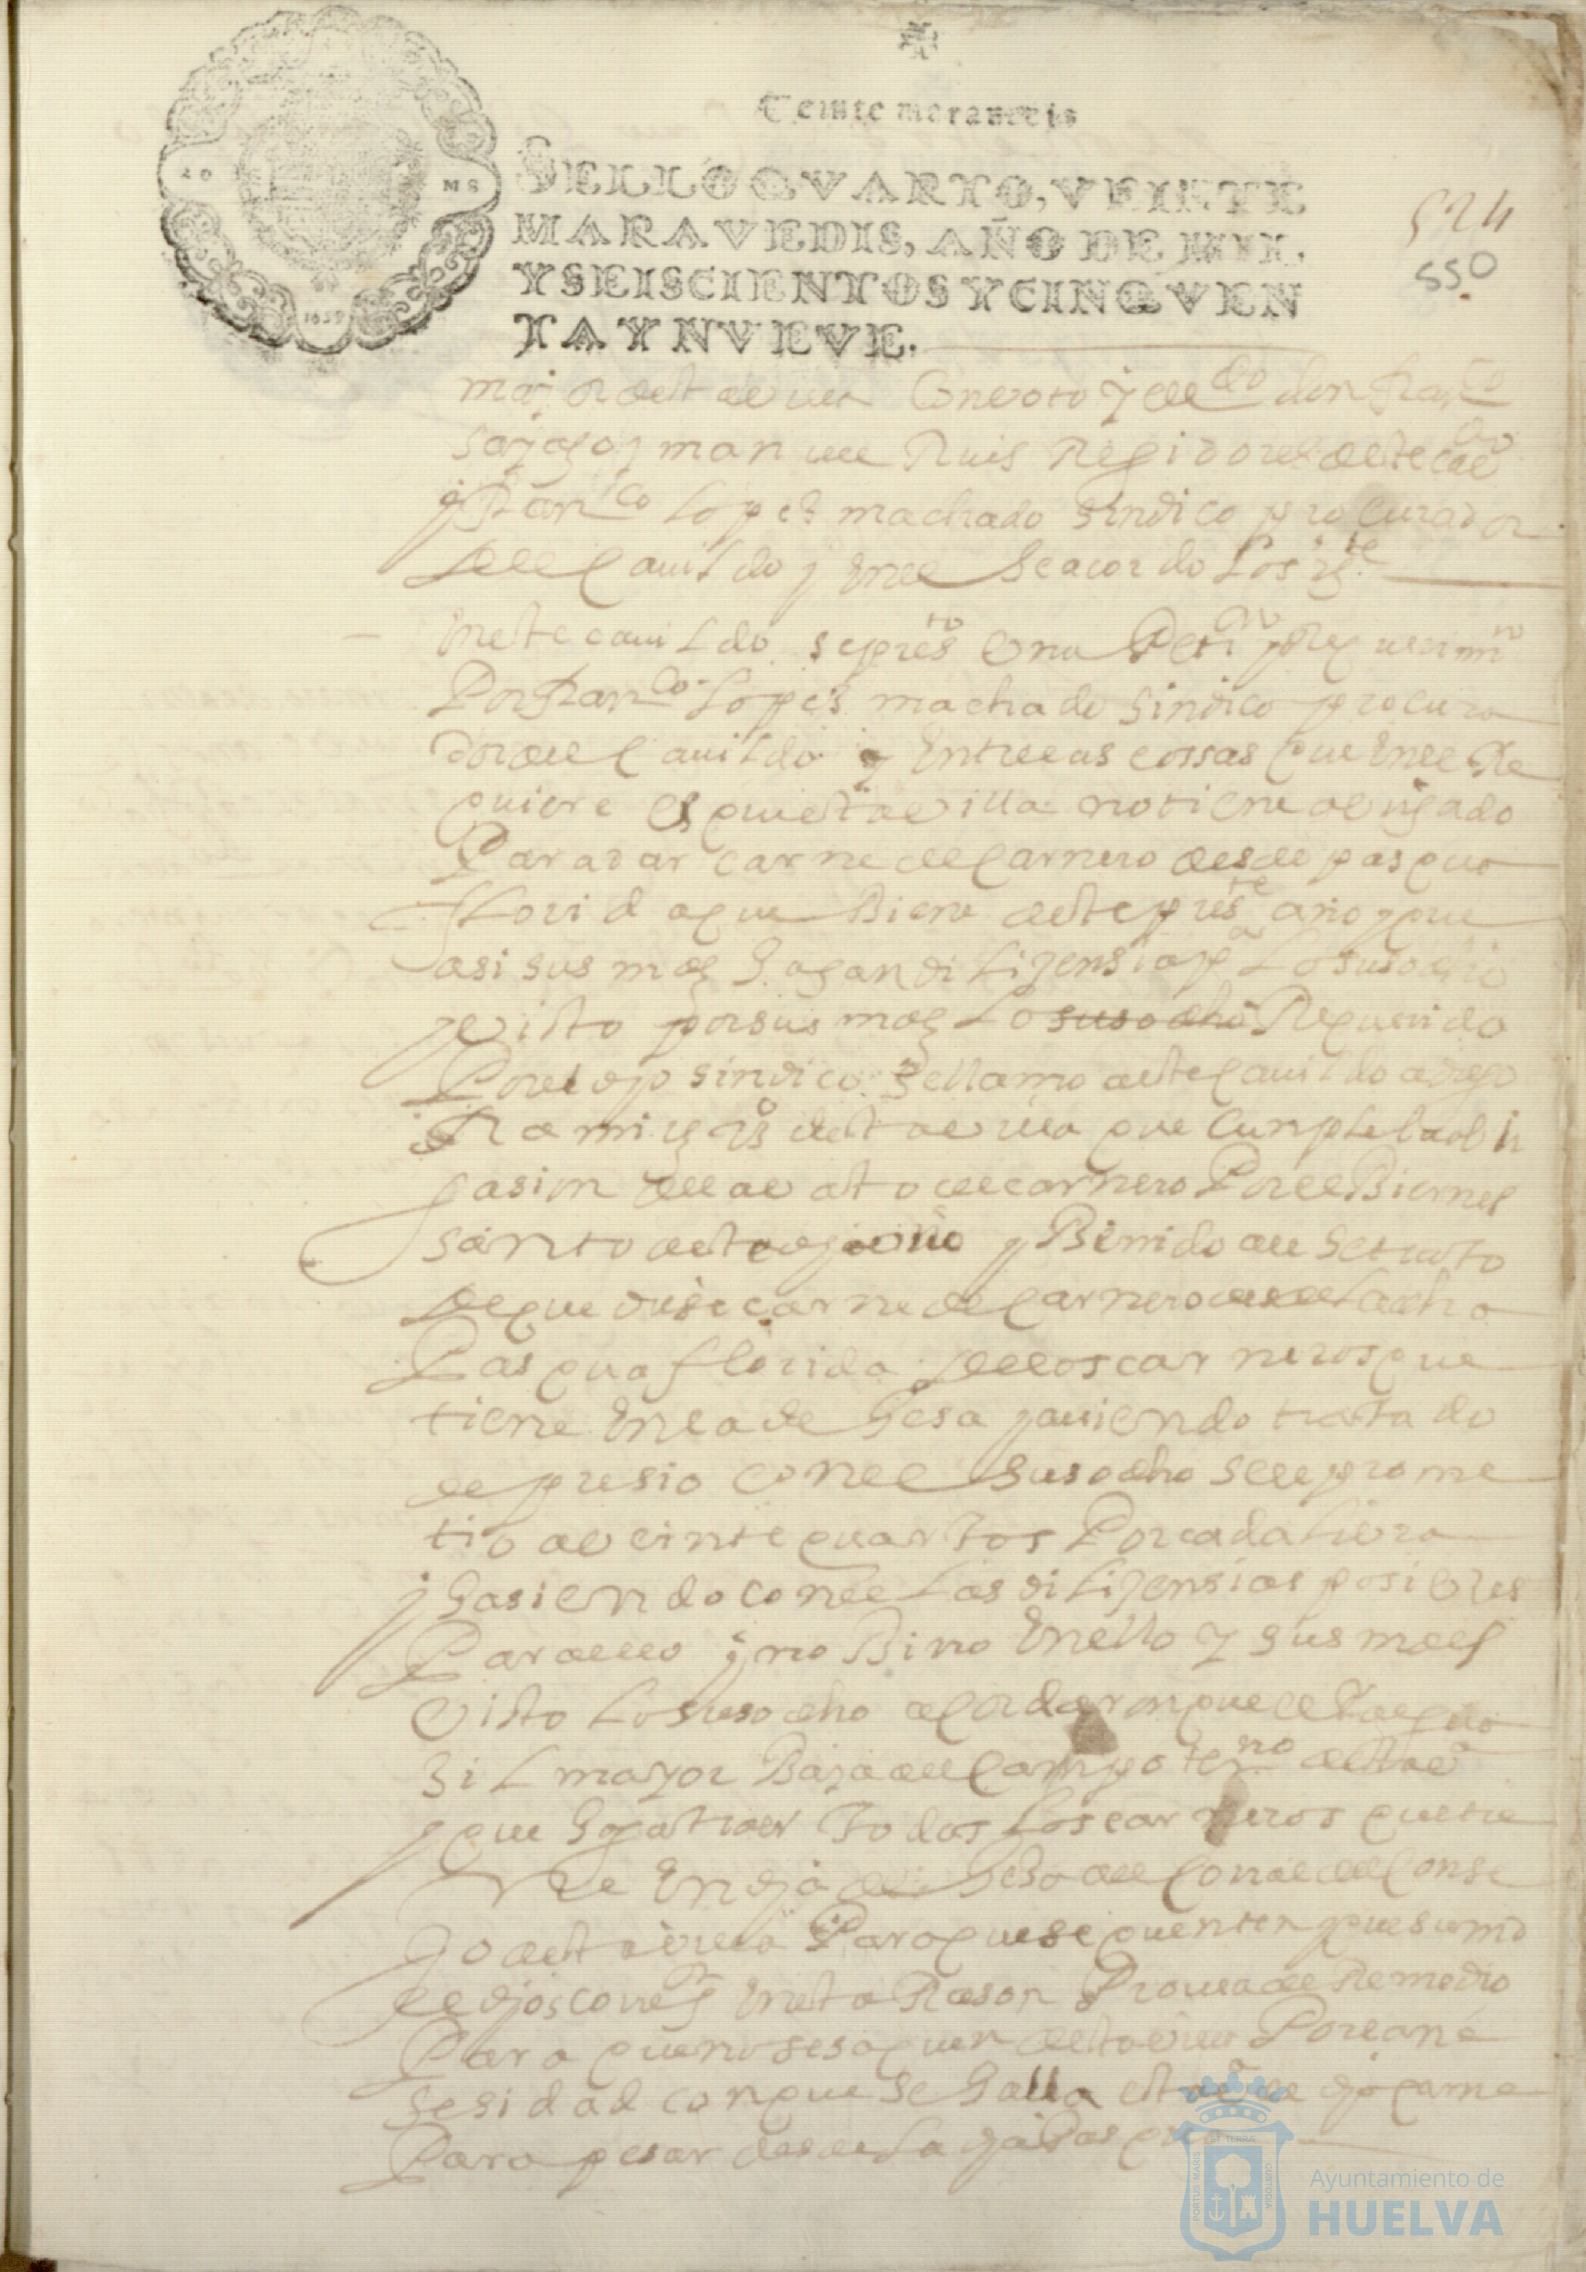 Veinte maravedis
SELLO QVARTO, VEINTE
MARAVEDIS, AÑO DE MIL,
Y SEISCIENTOS Y CINQVEN
TA Y NVEVE.
20 MS
1659
524
550
maior desta villa Con voto y el don franco
man Ruis Regidores deste
y franco Lopes machado sindico procurador
del Cauildo y En el Se acordo Lo sigte
En este cauildo se presto Una Petion y Requerimto
Por franco Lopes machado sindico procura
dor del Cauildo y Entre las cossas que En el Re
quiere Es que esta villa no tiene obligado
Para dar carne de Carnero desde pasqua
florida que Biene deste preste año y que
asi sus mds hagan diligensia pa Lo susodho
y visto por sus mds Lo susodho Requerido
Por el djo sindico Se llamo a este Cauildo a diego
Ramires vo desta villa que Cumple la obli
gasion del avasto de carnero Por el Biernes
santo deste djo año y Benido al Se trato
de que diese carne de Carnero desde La dha
Pasqua florida de los carneros que
tiene En la dehesa y auiendo tratado
de presio con el Susodho Se le prome
tio a veinte quartos Por cada Livra
y hasiendo con el Las diligensias posivles
Para ello y no Bino En ello y sus mds
Visto Lo susodho acordaron que el alguasil mayor Baja al Campo termno desta va
y que haga traer Todos Los carneros que tie
ne En dja dehesa del Conde del Conse
jo desta villa Para que se quenten y que su md
el djo s corregor En esta Rason Provea de Remedio
Para que no se saquen desta villa Por la ne
sesidad con que Se halla esta va de djo carne
Para pesar desde La dja Pasqua
PORTUS MARIS ET TERRAE CUSTODIA
Ayuntamiento de
HUELVA